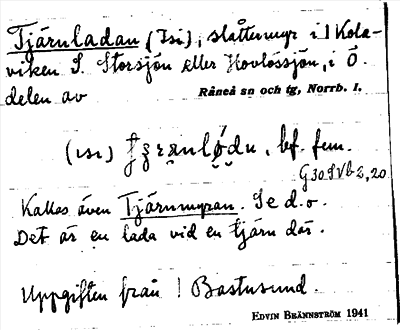 Tjärnladan (Isi), slåttermyr i Kola-
viken S. Storsjön eller Hovlössjön, i Ö.
delen av Råneå sn och tg, Norrb. l.
(ısı) bf. fem.
G30SVb2,20
Kallas även Tjärnmyran. Se d.o.
Det är en lada vid en tjärn där.
Uppgiften från Bastusund.
EDVIN BRÄNNSTRÖM 1941